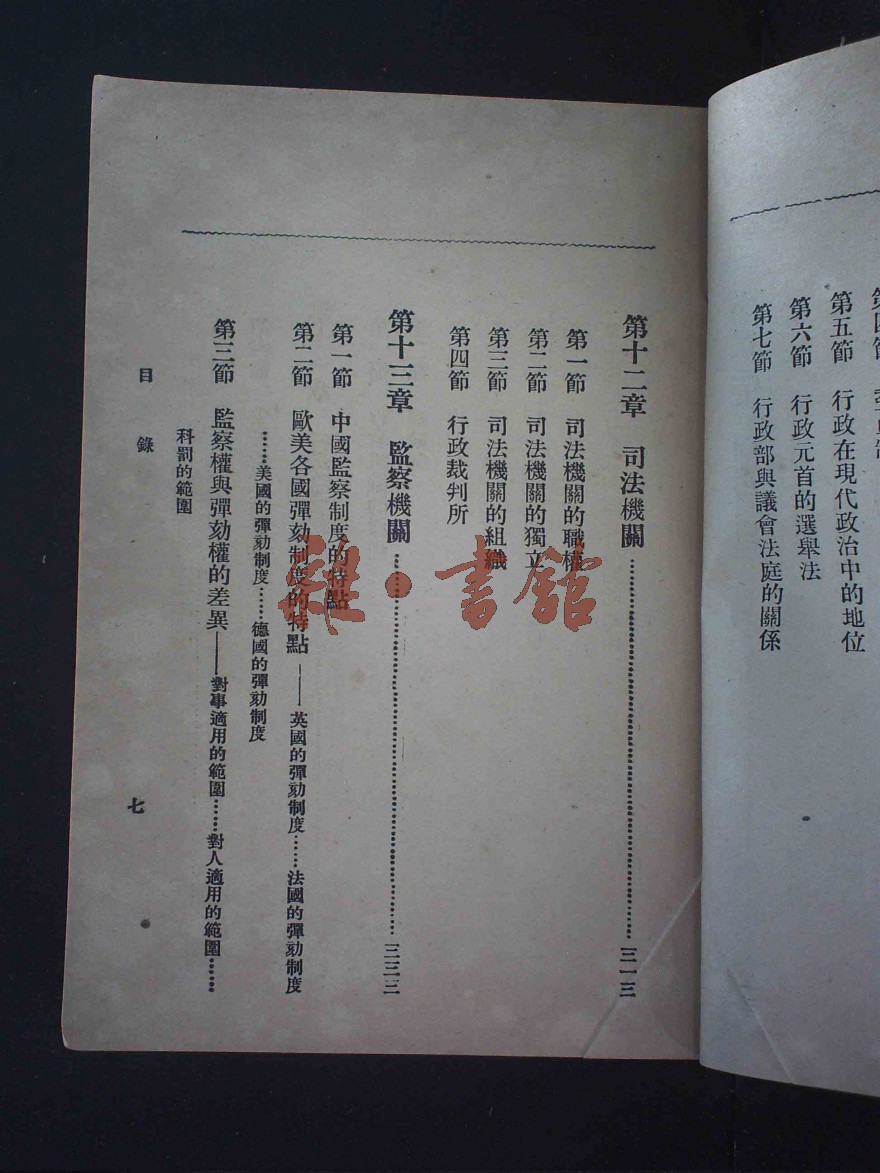 第五節 行政在現代政治中的地位
第六節 行政元首的選舉法
第七節 行政部與議會法庭的關係
第十二章 司法機關……三一三
第一節 司法機關的職權
第二節 司法機關的獨立
第三節 司法機關的組織
第四節 行政裁判所
第十三章 監察機關……三三三
第一節 中國監察制度的特點
第二節 歐美各國彈劾制度的特點——英國的彈劾制度……法國的彈劾制度
……美國的彈劾制度……德國的彈劾制度
第三節 監察權與彈劾權的差異——對事適用的範圍……對人適用的範圍……
科罰的範圍
目錄
七
雜·書館